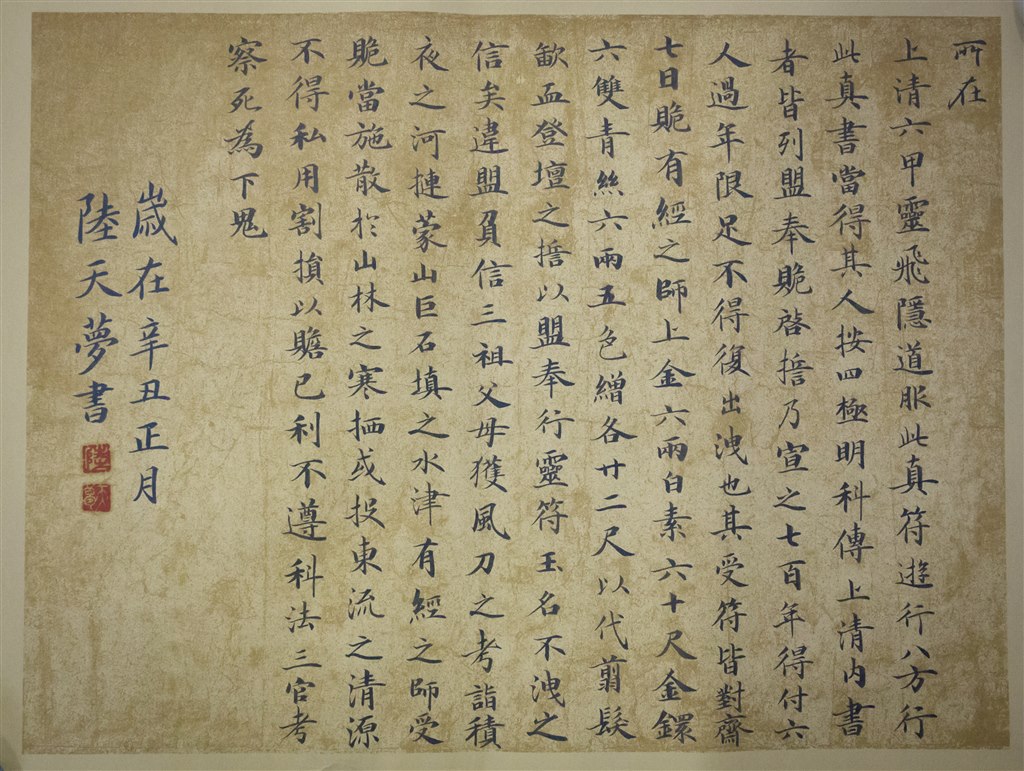 所在
上清六甲靈飛隱道服此真符遊行八方行
此真書當得其人按四極明科傳上清內書
者皆列盟奉貺啓誓乃宣之七百年得付六
人過年限足不得復出洩也其受符皆對齋
七日貺有經之師上金六兩白素六十尺金鐶
六雙青絲六兩五色繒各廿二尺以代翦髮
歃血登壇之誓以盟奉行靈符玉名不洩之
信矣違盟負信三祖父母獲風刀之考詣積
夜之河摙蒙山巨石填之水津有經之師受
貺當施散於山林之寒栖或投東流之清源
不得私用割損以贍己利不遵科法三官考
察死為下鬼
歲在辛丑正月
陸天夢書